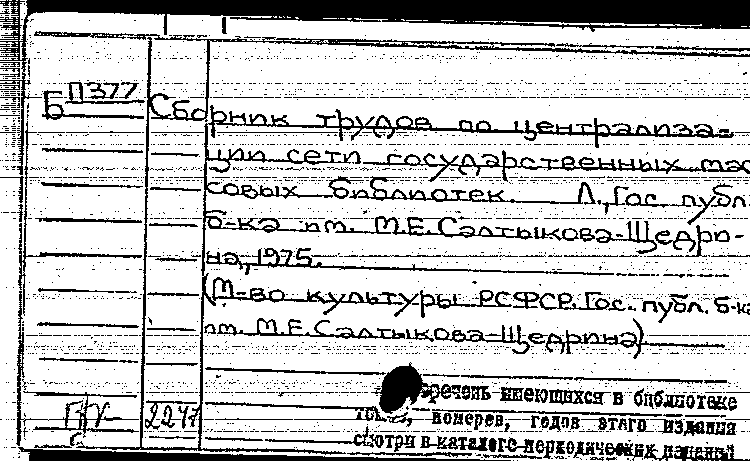 Б П377
Сборник трудов по централиза-
ции сети государственных мас
совых библиотек. Л., Гос. публ.
б-ка им. М.Е.Салтыкова-Щедри-
на, 1975.
(М-во культуры РСФСР. Гос. публ. б-ка
им. М.Е.Салтыкова-Щедрина)
речень имеющихся в библиотеке
номеров, годов этого издания
2247 смотри в каталоге периодических изданий